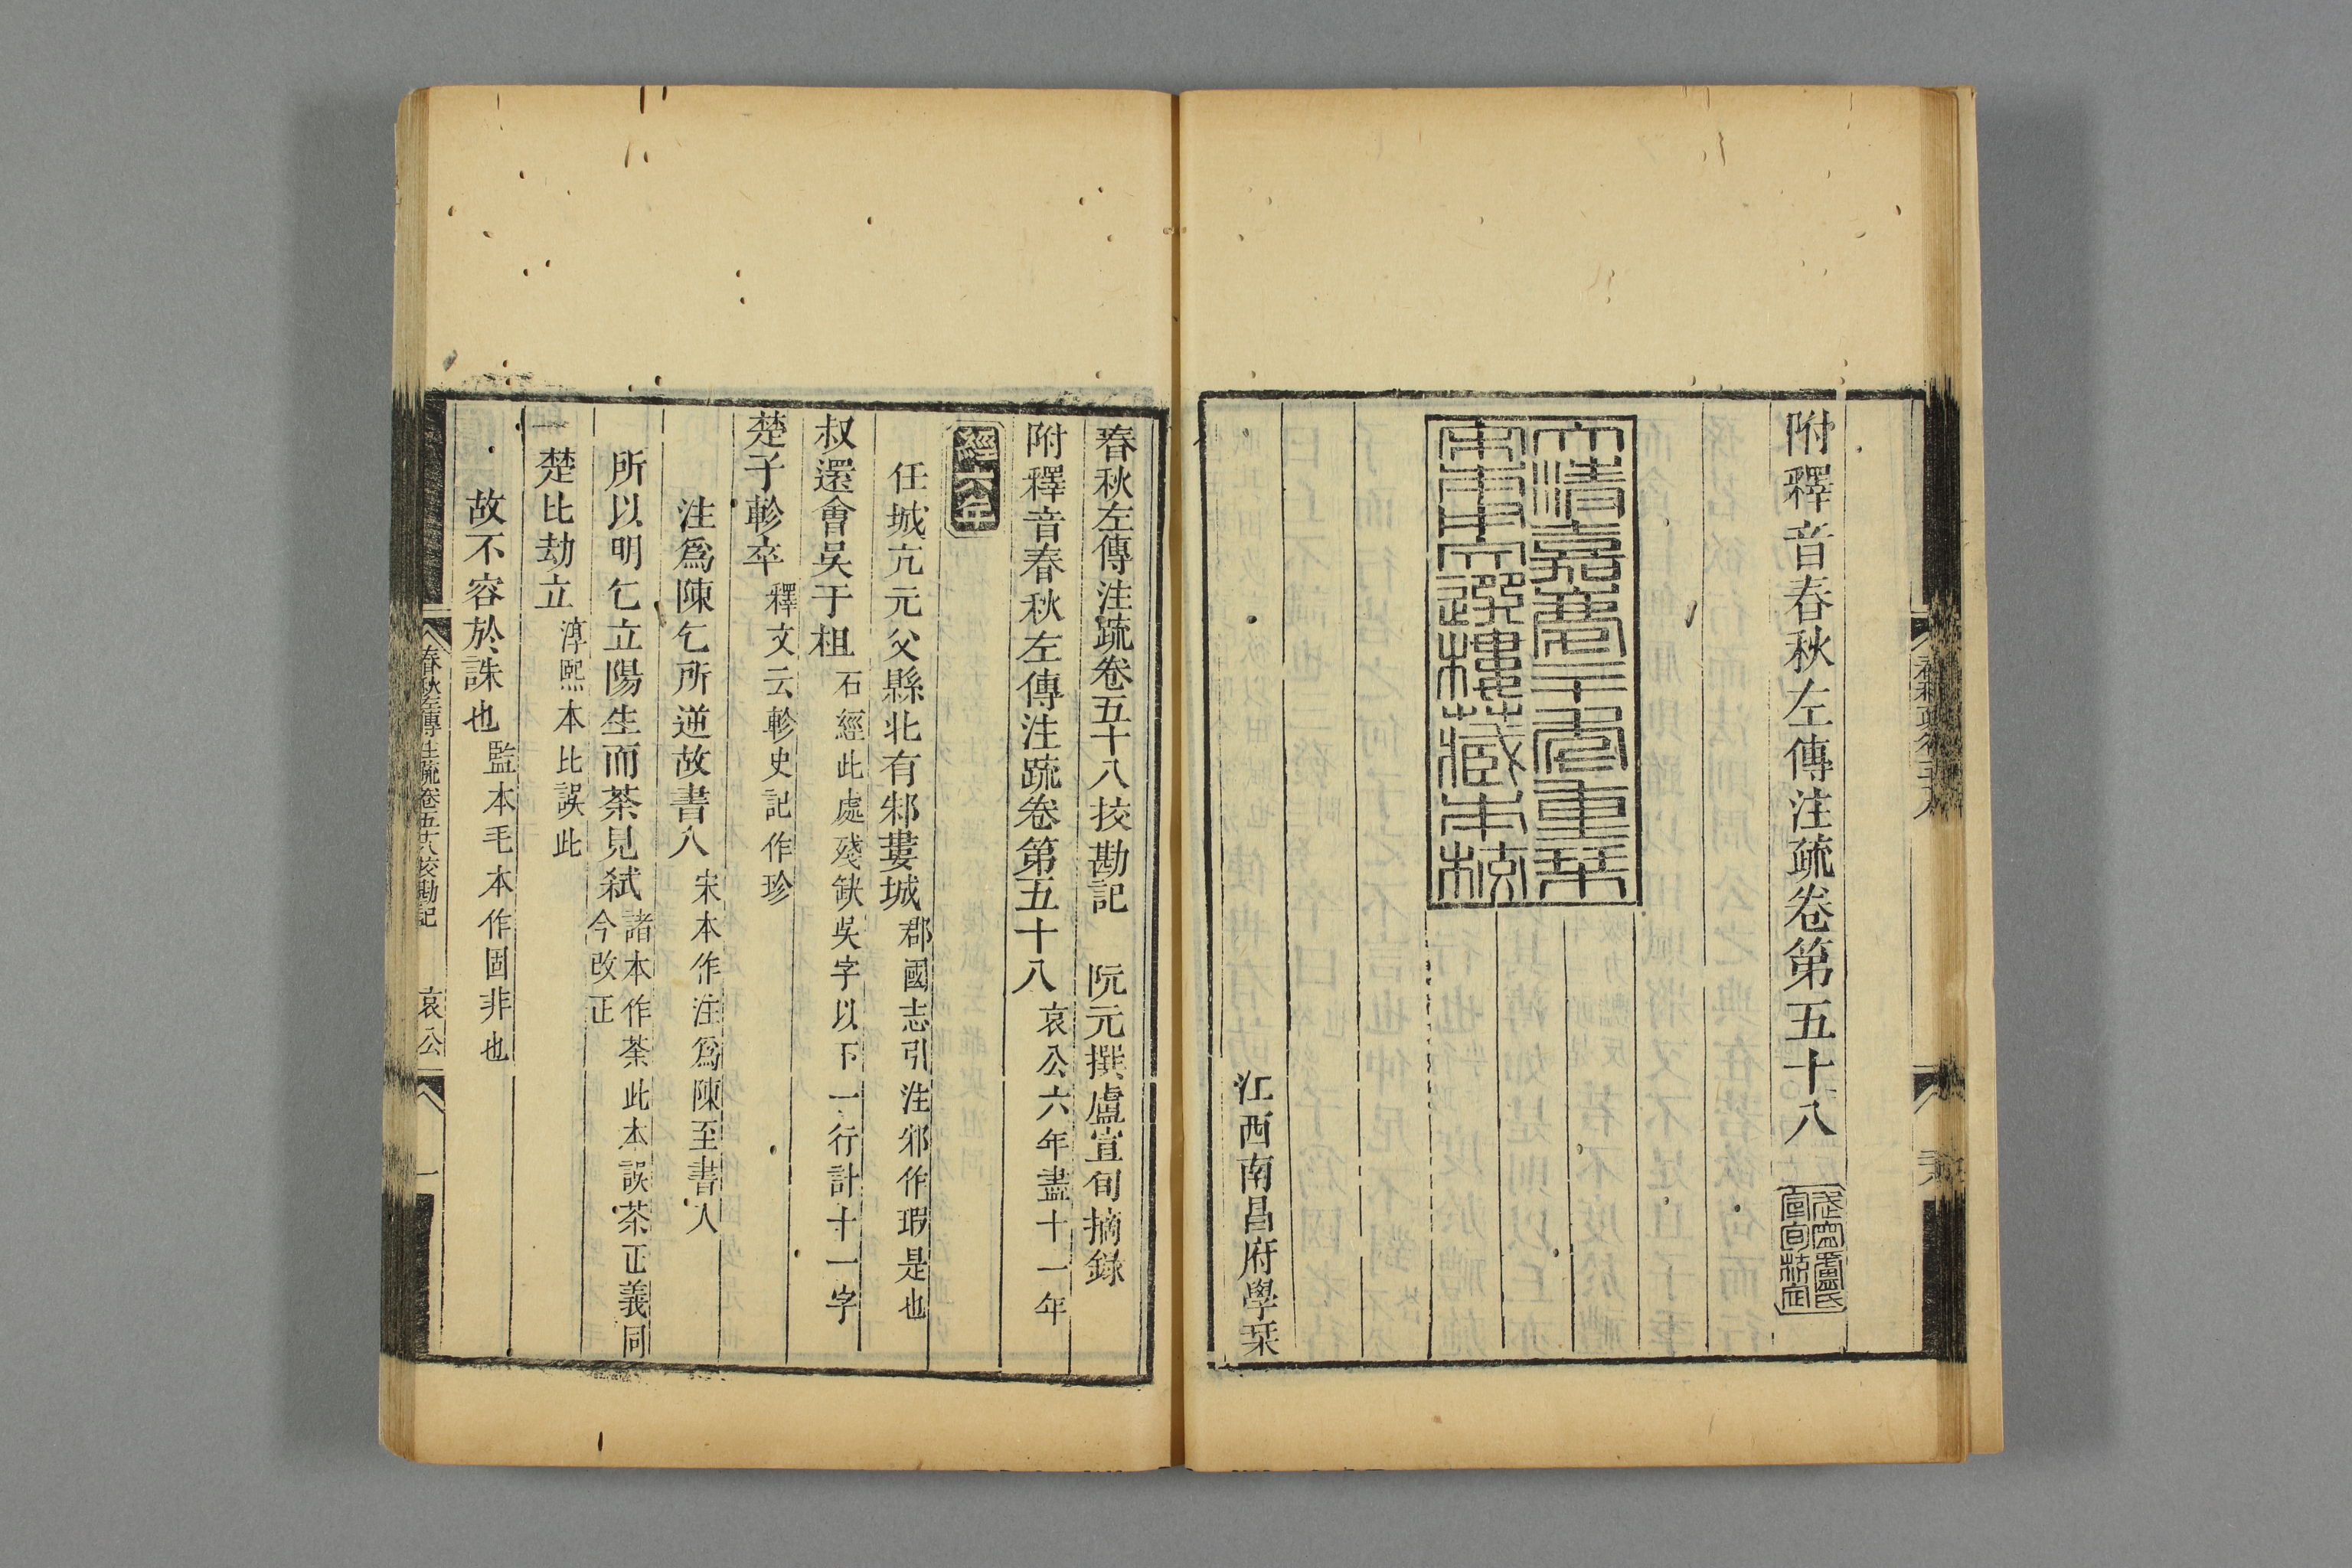 附釋音春秋左傳注疏卷第五十八
武寧盧氏宣旬校定
大清嘉慶二十年重栞
宋本十三經文選樓藏本校
江西南昌府學栞
春秋左傳注疏卷五十八挍勘記　阮元撰盧宣旬摘錄
附釋音春秋左傳注疏卷第五十八　哀公六年盡十一年
經六年
任城亢元父縣北有邾婁城　郡國志引注邾作瑕是也
叔還會吳于柤　石經此處殘缺吳字以下一行計十一字
楚子軫卒　釋文云軫史記作珍
注爲陳乞所逆故書入　宋本作注爲陳至書人
所以明乞立陽生而荼見弒　諸本作荼此本誤茶正義同今改正
楚比劫立　淳熙本比誤此
故不容於誅也　監本毛本作固非也
春秋左傳注疏卷五十八挍勘記　哀公　一